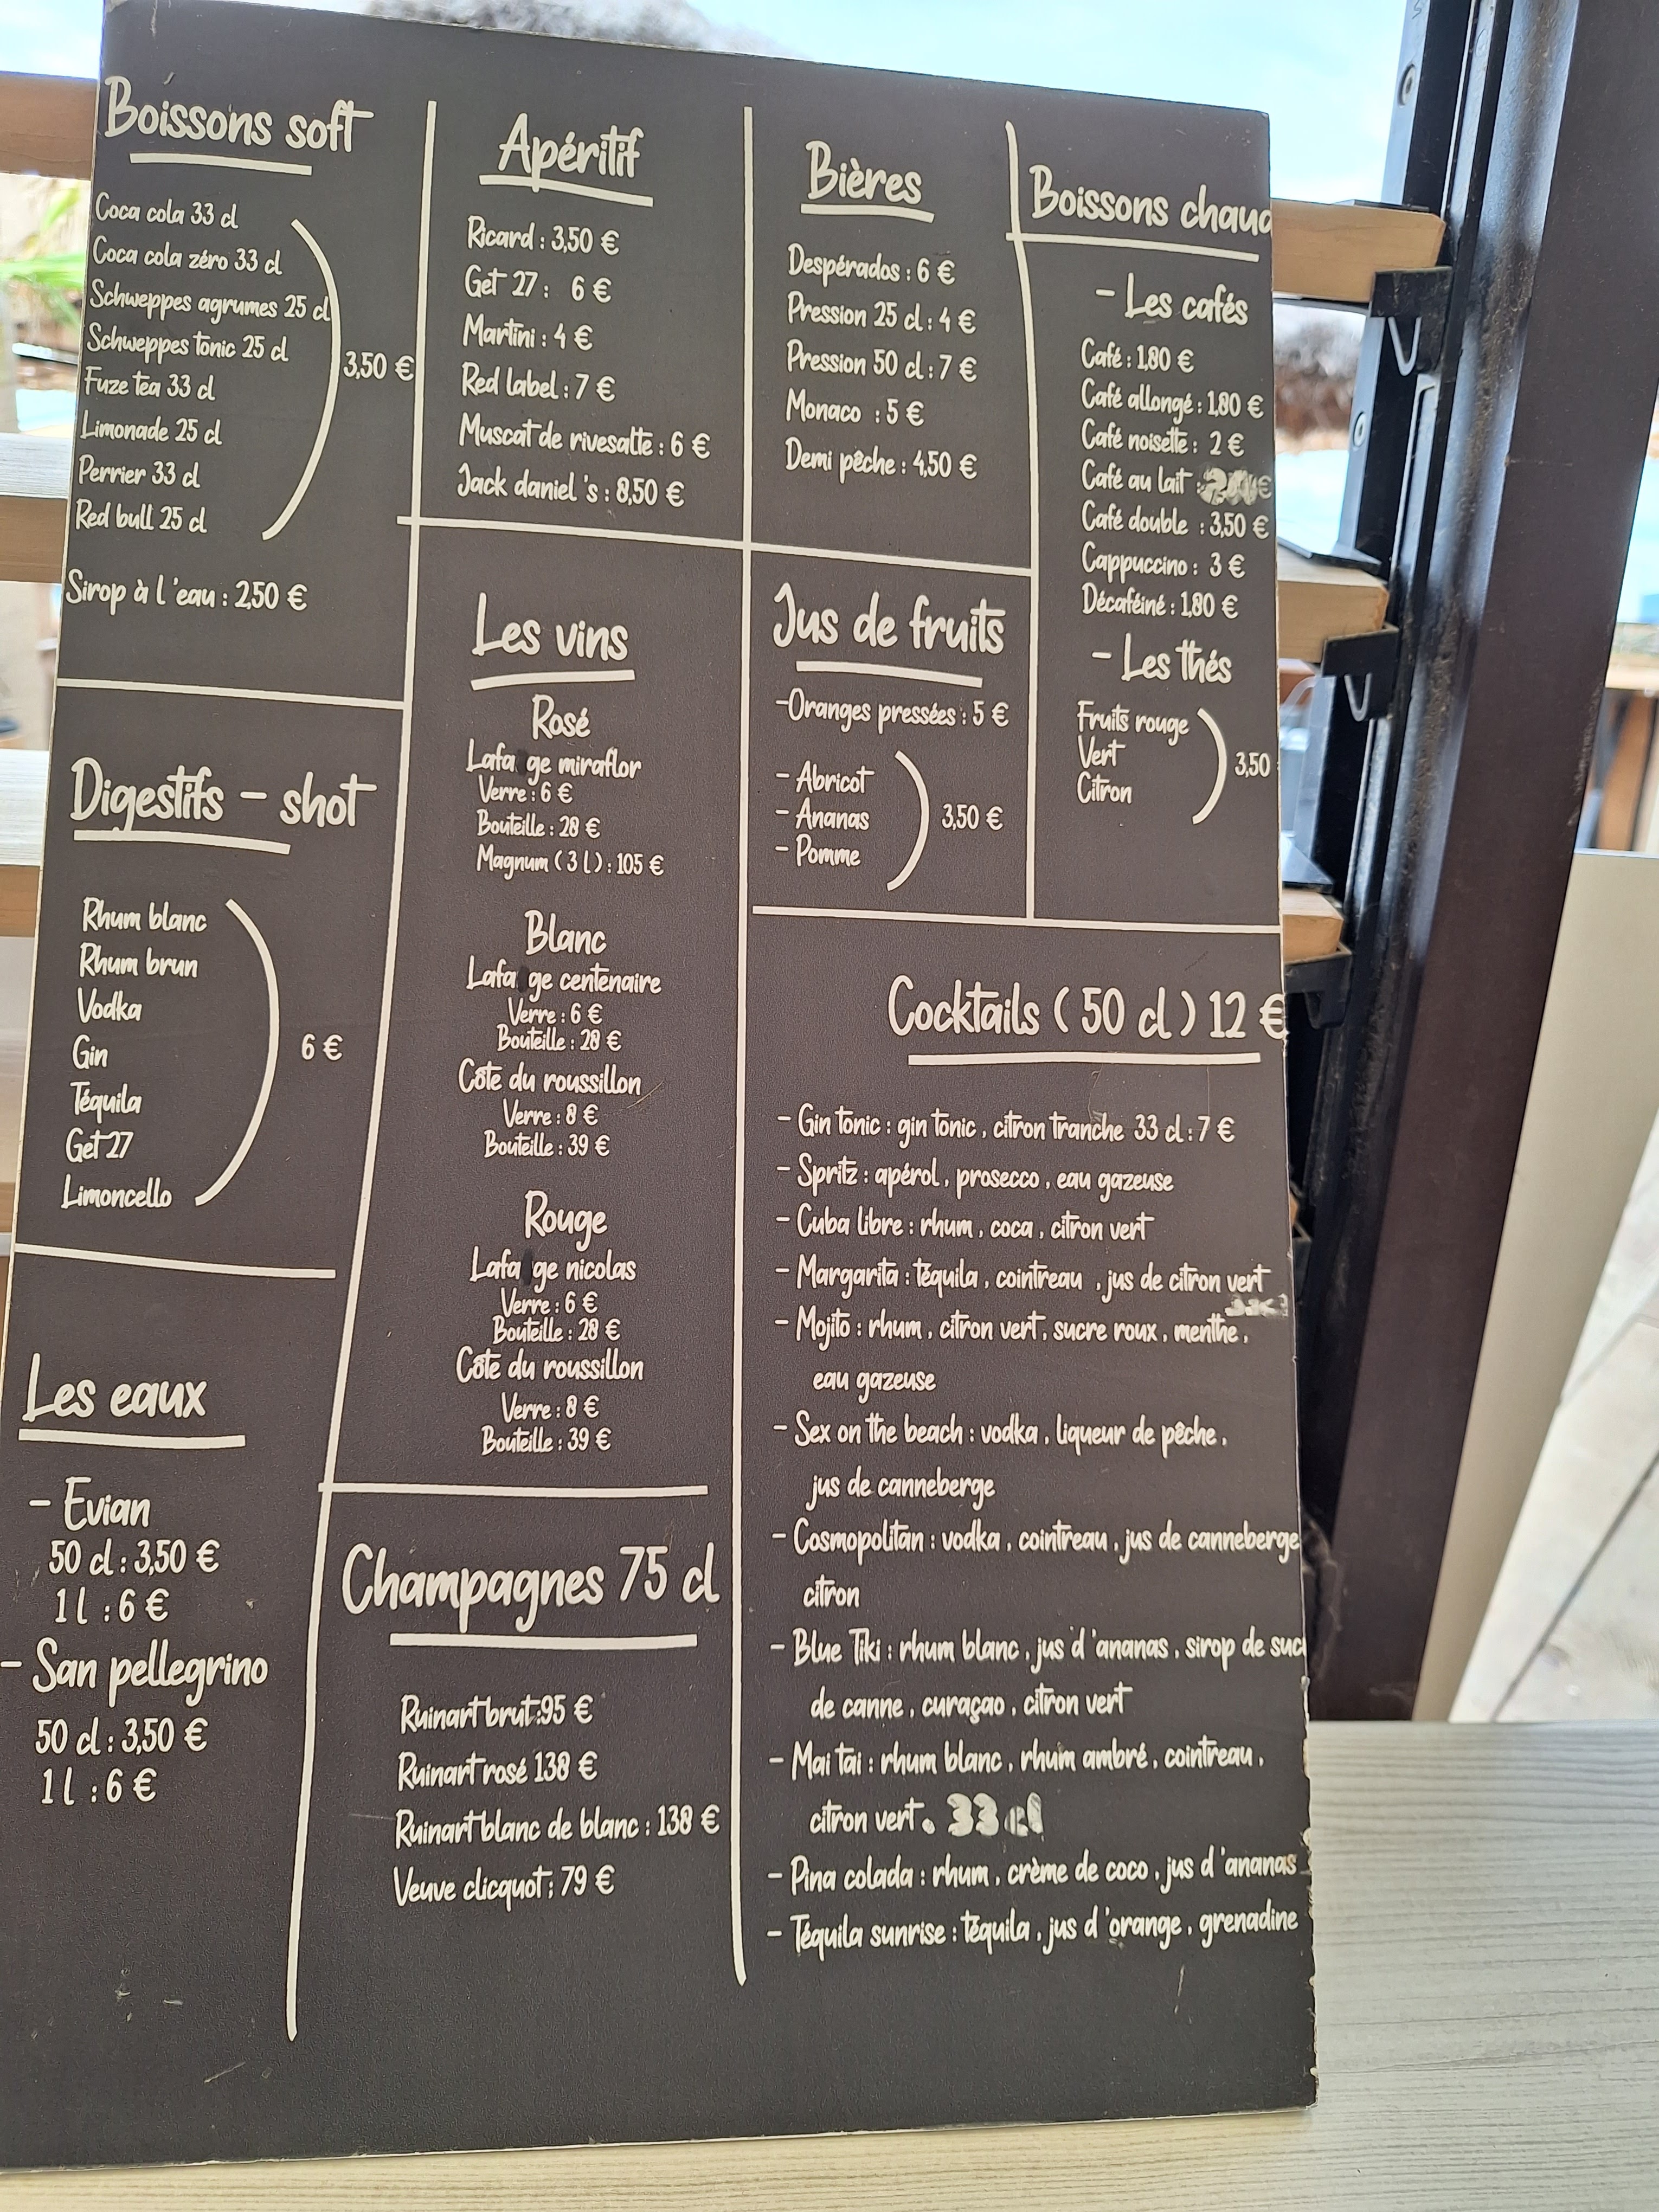 Boissons soft
Coca cola 33 cl
Coca cola zéro 33 cl
Schweppes agrumes 25 cl
Schweppes tonic 25 cl
Fuze tea 33 cl
Limonade 25 cl
Perrier 33 cl
Red bull 25 cl
3,50 €
Sirop à l'eau : 2,50 €
Digestifs - shot
Rhum blanc
Rhum brun
Vodka
Gin
Téquila
Get 27
Limoncello
6 €
Les eaux
- Evian
50 cl : 3,50 €
1 l : 6 €
- San pellegrino
50 cl : 3,50 €
1 l : 6 €
Apéritif
Ricard : 3,50 €
Get 27 : 6 €
Martini : 4 €
Red label : 7 €
Muscat de rivesalte : 6 €
Jack daniel 's : 8,50 €
Les vins
Rosé
Lafa ge miraflor
Verre : 6 €
Bouteille : 28 €
Magnum ( 3 l ) : 105 €
Blanc
Lafa ge centenaire
Verre : 6 €
Bouteille : 28 €
Côte du roussillon
Verre : 8 €
Bouteille : 39 €
Rouge
Lafa ge nicolas
Verre : 6 €
Bouteille : 28 €
Côte du roussillon
Verre : 8 €
Bouteille : 39 €
Champagnes 75 cl
Ruinart brut :95 €
Ruinart rosé 138 €
Ruinart blanc de blanc : 138 €
Veuve clicquot : 79 €
Bières
Despérados : 6 €
Pression 25 cl : 4 €
Pression 50 cl : 7 €
Monaco : 5 €
Demi pêche : 4,50 €
Jus de fruits
-Oranges pressées : 5 €
- Abricot
- Ananas
- Pomme
3,50 €
Boissons chaud
- Les cafés
Café : 1,80 €
Café allongé : 1,80 €
Café noisette : 2 €
Café au lait
Café double : 3,50 €
Cappuccino : 3 €
Décaféiné : 1,80 €
- Les thés
Fruits rouge
Vert
Citron
3,50
Cocktails ( 50 cl ) 12 €
- Gin tonic : gin tonic , citron tranche 33 cl : 7 €
- Spritz : apérol , prosecco , eau gazeuse
- Cuba libre : rhum , coca , citron vert
- Margarita : téquila , cointreau , jus de citron vert
- Mojito : rhum , citron vert , sucre roux , menthe ,
eau gazeuse
- Sex on the beach : vodka , liqueur de pêche ,
jus de canneberge
- Cosmopolitan : vodka , cointreau , jus de canneberge
citron
- Blue Tiki : rhum blanc , jus d 'ananas , sirop de suc
de canne , curaçao , citron vert
- Mai tai : rhum blanc , rhum ambré , cointreau ,
citron vert . 33 cl
- Pina colada : rhum , crème de coco , jus d 'ananas
- Téquila sunrise : téquila , jus d 'orange , grenadine